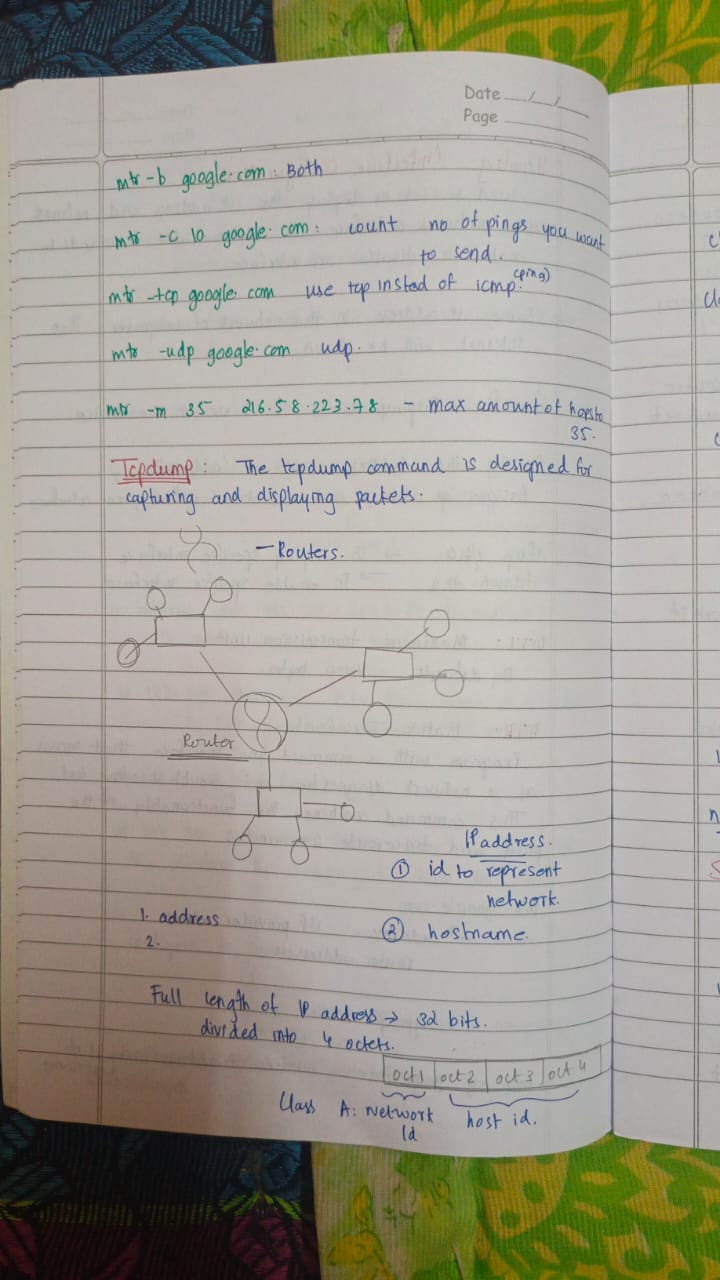 Date __/__/__
Page
mtr -b google.com : Both
mtr -c 10 google.com : count no of pings you want
to send.
mtr -tcp google.com use tcp insted of icmp. (ping)
mtr -udp google.com udp.
mtr -m 35 216.58.223.78 - max amount of hops to
35.
Tcpdump : The tcpdump command is designed for
capturing and displaying packets.
- Routers.
Router
IP address.
① id to represent
network.
1. address
② hostname.
2.
Full length of IP address → 32 bits.
divided into 4 octets.
oct1 oct2 oct 3 oct 4
Class A: Network host id.
Id